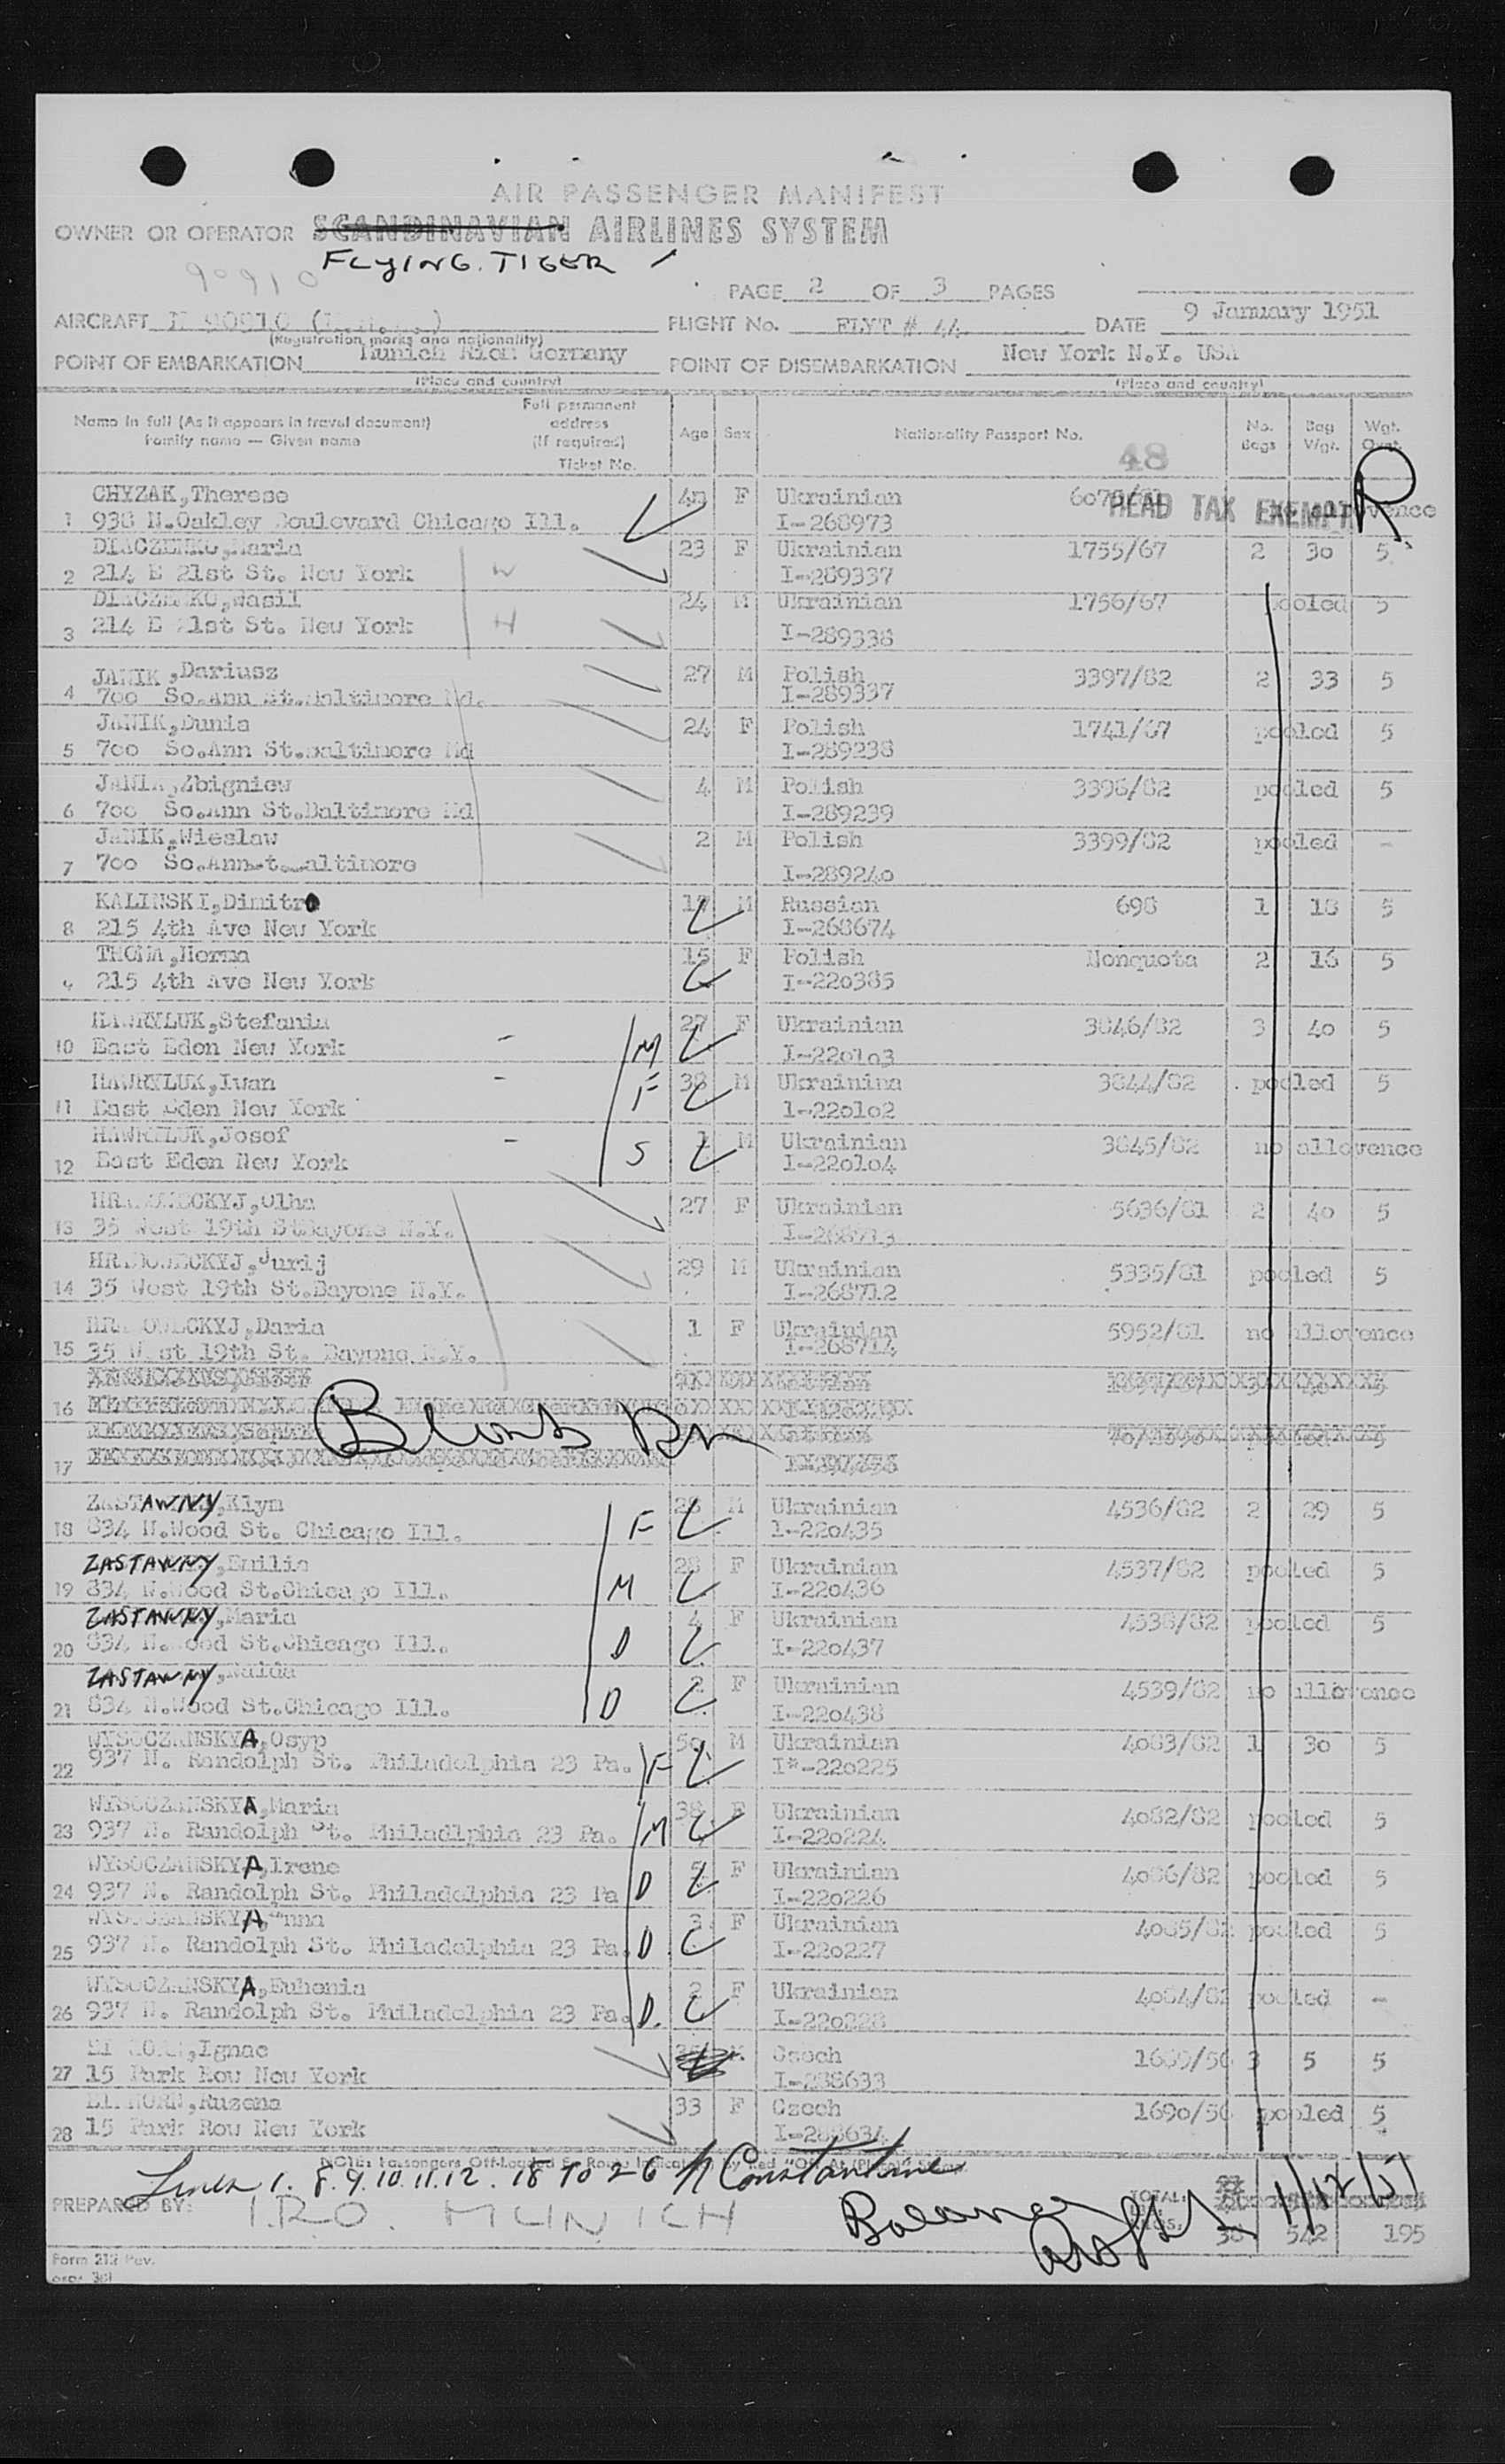 AIR PASSENGER MANIFEST
OWNER OR OPERATOR SCANDINAVIAN AIRLINES SYSTEM
FLYING TIGER
90910
PAGE 2 OF 3 PAGES
AIRCRAFT N 90910 FLIGHT No. FLYT # 44 DATE 9 January 1951
(Registration marks and nationality)
POINT OF EMBARKATION Munich Riem Germany POINT OF DISEMBARKATION New York N.Y. USA
(Place and country) (Place and country)
Name in full (As it appears in travel document) Family name — Given name Full permanent address (If required) Ticket No. Age Sex Nationality Passport No. No. Bags Bag Wgt. Wgt. Ovct.
48
HEAD TAX EXEMPT R
CHYZAK,Therese F Ukrainian
1 938 N.Oakley Boulevard Chicago Ill. I-268973
DIACZENKO,Maria 23 F Ukrainian 1755/67 2 30 5
2 214 E 21st St. New York W I-289337
DIACZENKO,Wasil 24 M Ukrainian 1756/67 pooled 5
3 214 E 21st St. New York H I-289338
JANIK,Dariusz 27 M Polish 3397/82 2 33 5
4 700 So.Ann St.Baltimore Md. I-289337
JANIK,Dunia 24 F Polish 1741/67 pooled 5
5 700 So.Ann St.Baltimore Md I-289238
JANIK,Zbigniew 4 M Polish 3398/82 pooled 5
6 700 So.Ann St.Baltimore Md I-289239
JANIK,Wieslaw 2 M Polish 3399/82 pooled -
7 700 So.Ann t. altimore I-289240
KALINSKI,Dimitro 17 M Russian 698 1 18 5
8 215 4th Ave New York I-268674
THOMA,Herma 15 F Polish Nonquota 2 16 5
9 215 4th Ave New York I-220385
HAWRYLUK,Stefania 27 F Ukrainian 3846/82 3 40 5
10 East Eden New York M I-220103
HAWRYLUK,Iwan 38 M Ukrainina 3844/82 pooled 5
11 East Eden New York F 1-220102
HAWRYLUK,Josef 1 M Ukrainian 3845/82 no allovence
12 East Eden New York S I-220104
Olha 27 F Ukrainian 5636/81 2 40 5
13 35 West 19th St.Bayone N.Y. I-268713
Jurij 29 M Ukrainian 5335/81 pooled 5
14 35 West 19th St.Bayone N.Y. I-268712
Daria 1 F Ukrainian 5952/81 no allovence
15 35 West 19th St. Bayone N.Y. I-268714
16
17
ZASTAWNY,Klym 28 M Ukrainian 4536/82 2 29 5
18 834 N.Wood St. Chicago Ill. F 1-220435
ZASTAWNY,Emilia 28 F Ukrainian 4537/82 pooled 5
19 834 N.Wood St.Chicago Ill. M I-220436
ZASTAWNY,Maria 4 F Ukrainian 4538/82 pooled 5
20 834 N.Wood St.Chicago Ill. D I-220437
ZASTAWNY, 2 F Ukrainian 4539/82 no allovence
21 834 N.Wood St.Chicago Ill. D I-220438
WYSOCZANSKYA,Osyp 50 M Ukrainian 4083/82 1 30 5
22 937 N. Randolph St. Philadelphia 23 Pa. F I*-220225
WYSOCZANSKYA,Maria 38 F Ukrainian 4082/82 pooled 5
23 937 N. Randolph St. Philadlphia 23 Pa. M I-220224
WYSOCZANSKYA,Irene 5 F Ukrainian 4086/82 pooled 5
24 937 N. Randolph St. Philadelphia 23 Pa D I-220226
WYSOCZANSKYA,Anna 3 F Ukrainian 4085/82 pooled 5
25 937 N. Randolph St. Philadelphia 23 Pa. D I-220227
WYSOCZANSKYA,Euhenia 2 F Ukrainian 4084/82 pooled -
26 937 N. Randolph St. Philadelphia 23 Pa. D. I-220228
Ignac Czech 1689/50 3 5 5
27 15 Park Row New York I-288633
Ruzena 33 F Czech 1690/50 pooled 5
28 15 Park Row New York I-288634
NOTE: Passengers Off-Loaded En Route Indicated by Red "Off At (Place)" Stamp
Lines 1. 8. 9. 10. 11. 12. 18 TO 26 Constantine
PREPARED BY: I.R.O. MUNICH Balance 1/12/51
TOTAL: 38 542 195
Form 212 Rev.